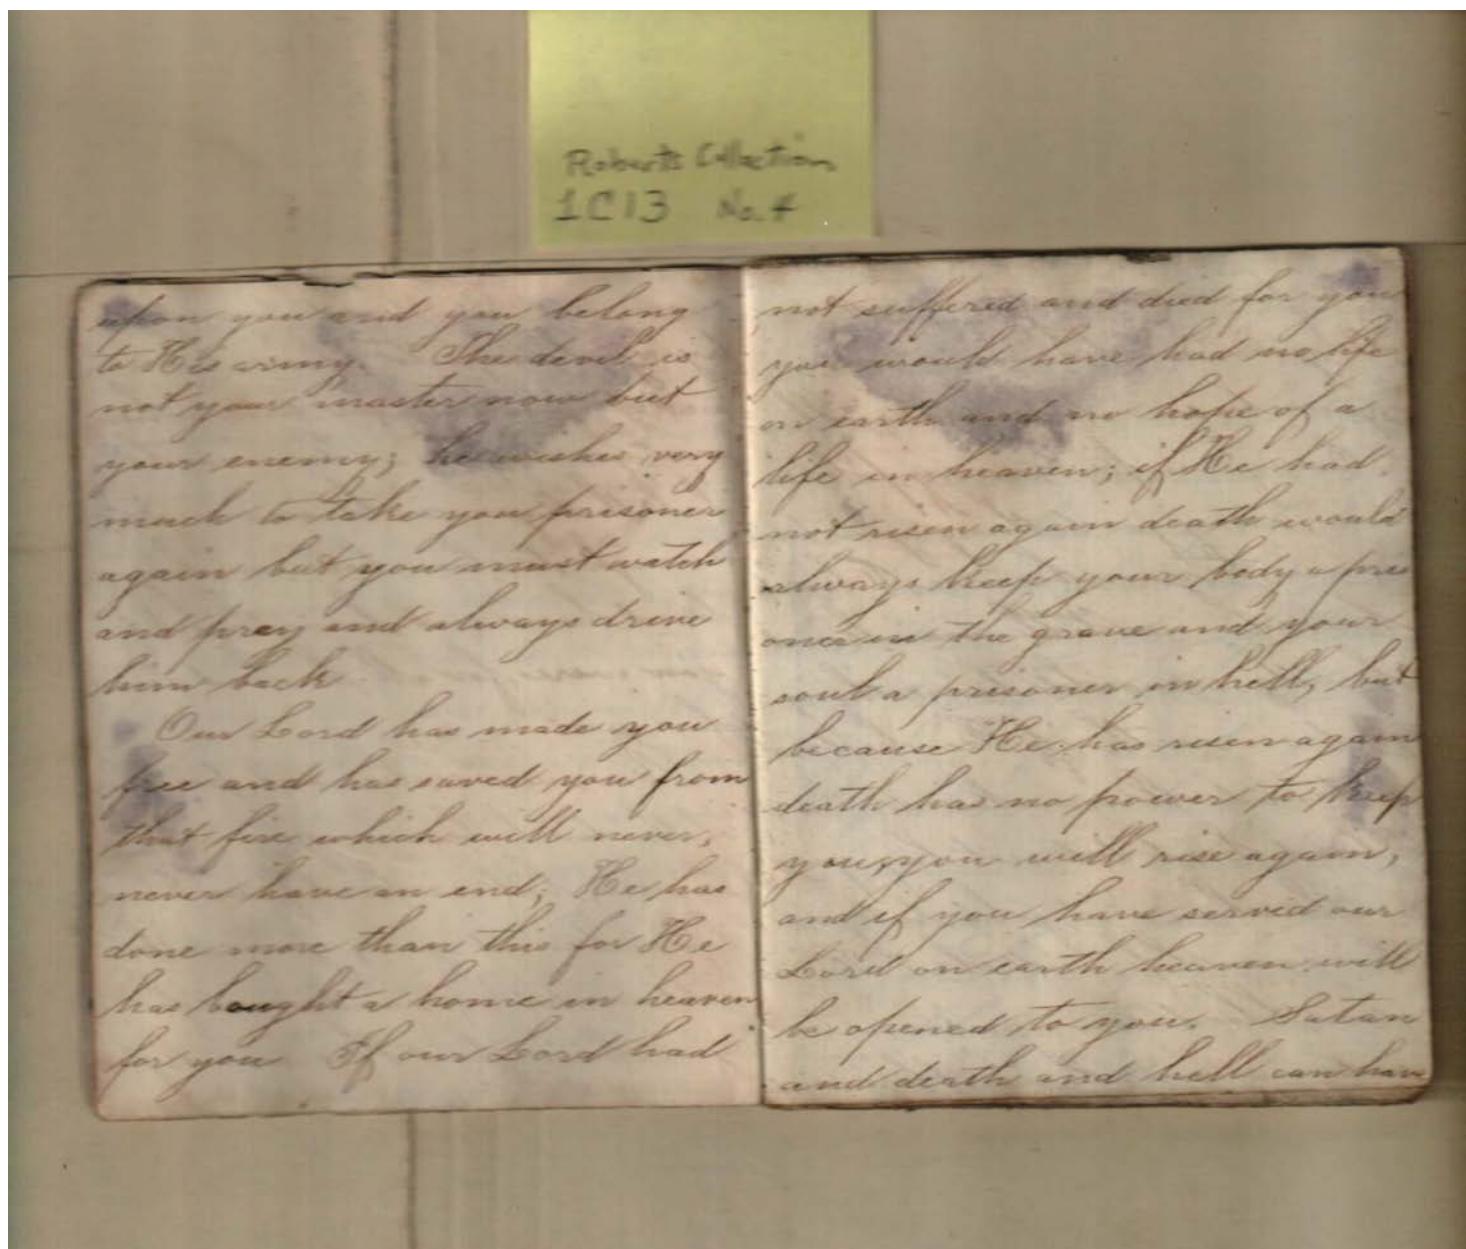 Roberts Collection
1C13 No. 4
upon you and you belong
to His army. The devil is
not your master now but
your enemy; he wishes very
much to take you prisoner
again but you must watch
and pray and always drive
him back
Our Lord has made you
free and has saved you from
that fire which will never,
never have an end; He has
done more than this for He
has bought a home in heaven
for you If our Lord had
not suffered and died for you
you would have had no life
on earth and no hope of a
life in heaven; if He had
not risen again death would
always keep your body a pris
oner in the grave and your
soul a prisoner in hell, but
because He has risen again
death has no power to keep
you, you will rise again,
and if you have served our
Lord on earth heaven will
be opened to you. Satan
and death and hell can have